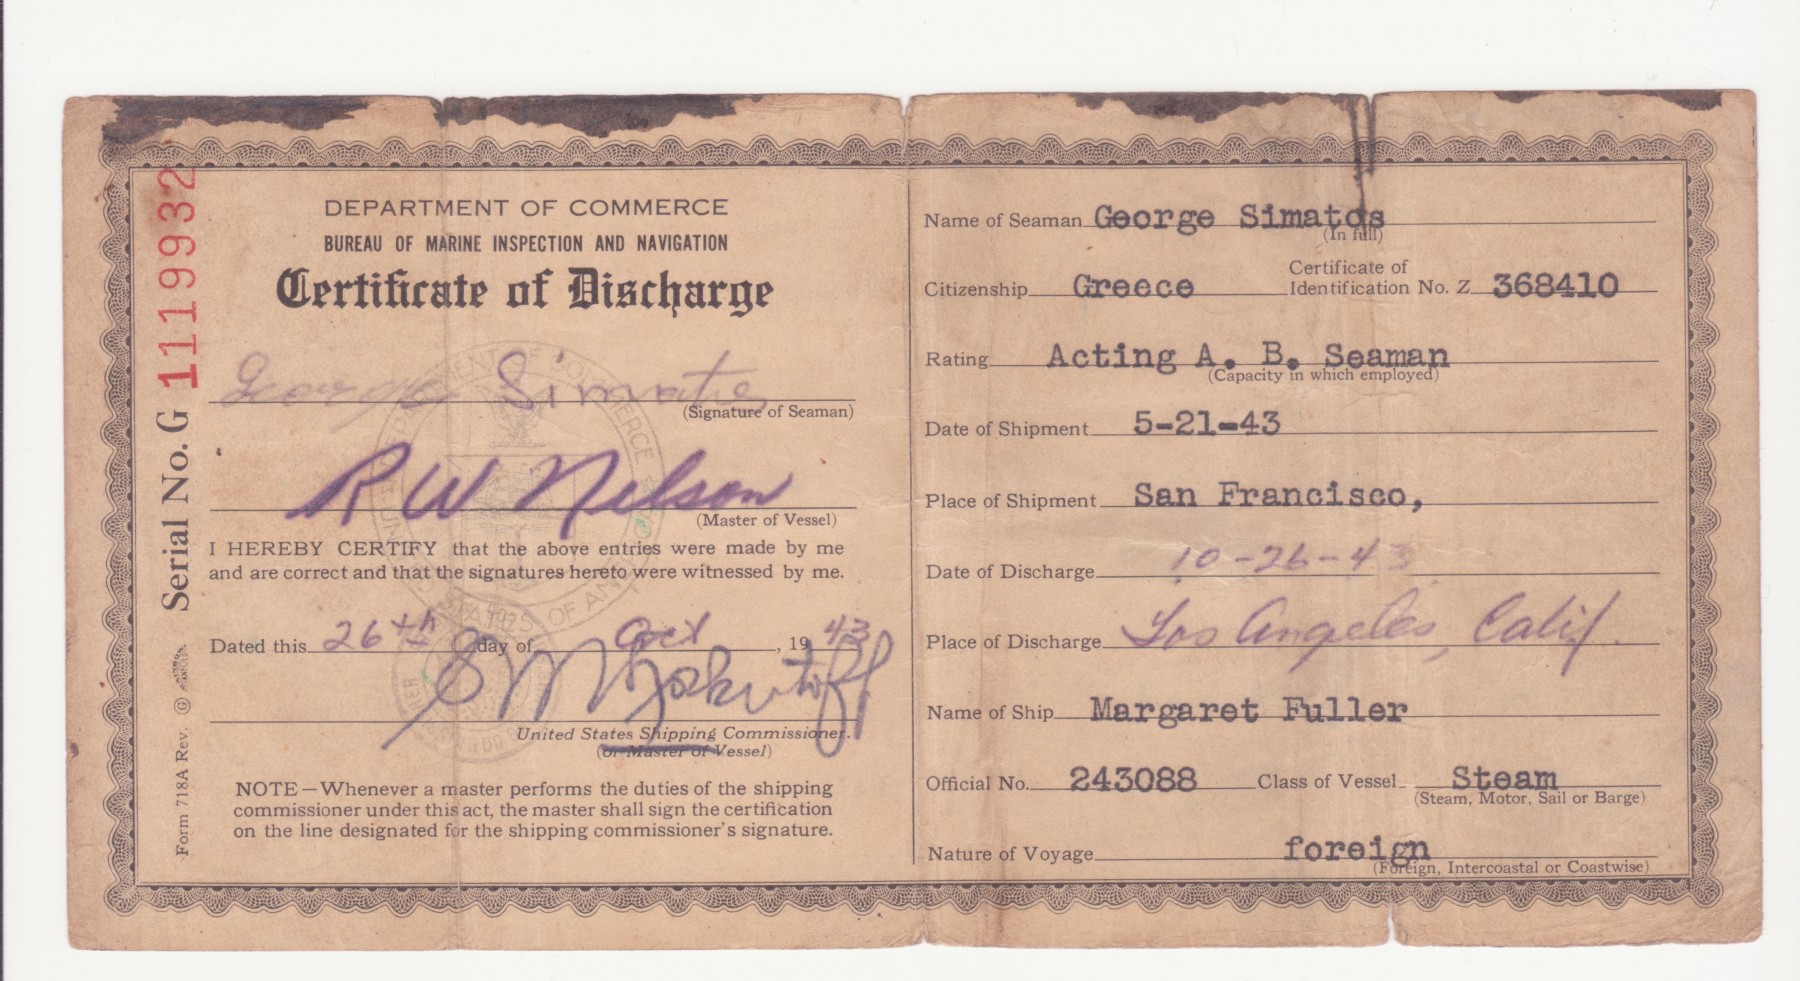 Serial No. G 1119932
Form 718A Rev.
DEPARTMENT OF COMMERCE
BUREAU OF MARINE INSPECTION AND NAVIGATION
Certificate of Discharge
George Simatos
(Signature of Seaman)
R W Nelson
(Master of Vessel)
I HEREBY CERTIFY that the above entries were made by me
and are correct and that the signatures hereto were witnessed by me.
Dated this 26th day of Oct, 1943
United States Shipping Commissioner.
(or Master of Vessel)
NOTE—Whenever a master performs the duties of the shipping
commissioner under this act, the master shall sign the certification
on the line designated for the shipping commissioner's signature.
Name of Seaman George Simatos
(In full)
Citizenship Greece Certificate of Identification No. Z 368410
Rating Acting A. B. Seaman
(Capacity in which employed)
Date of Shipment 5-21-43
Place of Shipment San Francisco,
Date of Discharge 10-26-43
Place of Discharge Los Angeles, Calif.
Name of Ship Margaret Fuller
Official No. 243088 Class of Vessel Steam
(Steam, Motor, Sail or Barge)
Nature of Voyage foreign
(Foreign, Intercoastal or Coastwise)